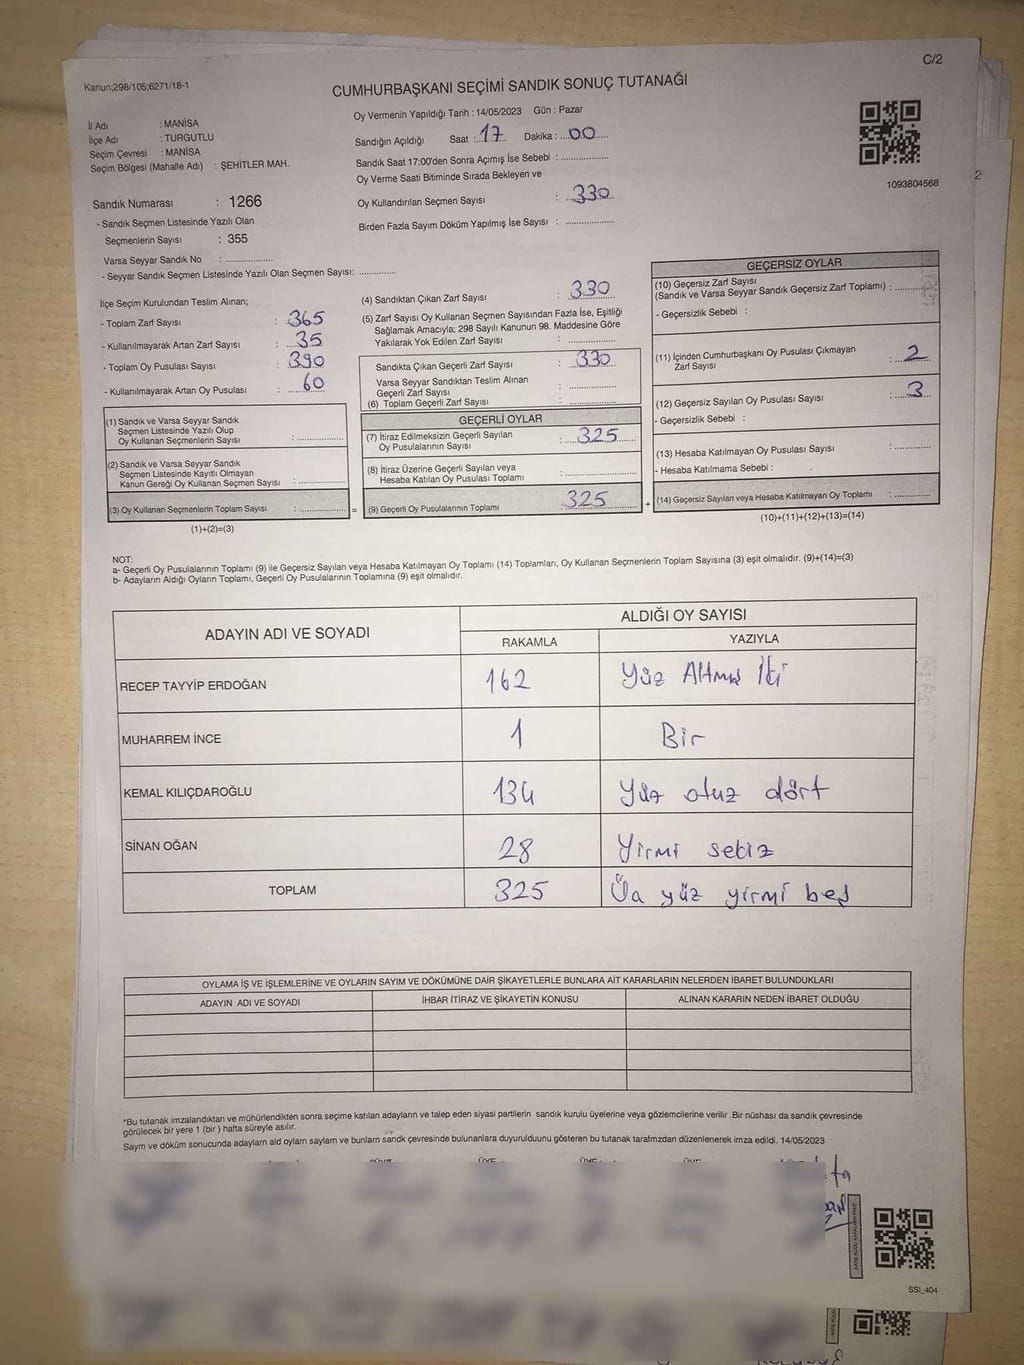 C/2
Kanun;298/105;6271/18-1
CUMHURBAŞKANI SEÇİMİ SANDIK SONUÇ TUTANAĞI
Oy Vermenin Yapıldığı Tarih : 14/05/2023 Gün : Pazar
İl Adı : MANİSA
İlçe Adı : TURGUTLU
Seçim Çevresi : MANİSA
Seçim Bölgesi (Mahalle Adı) : ŞEHİTLER MAH.
Sandığın Açıldığı Saat : 17 Dakika : 00
Sandık Saat 17:00'den Sonra Açımış İse Sebebi :
Oy Verme Saati Bitiminde Sırada Bekleyen ve
Oy Kullandırılan Seçmen Sayısı : 330
Birden Fazla Sayım Döküm Yapılmış İse Sayısı :
1093804568
2
Sandık Numarası : 1266
- Sandık Seçmen Listesinde Yazılı Olan
Seçmenlerin Sayısı : 355
Varsa Seyyar Sandık No :
- Seyyar Sandık Seçmen Listesinde Yazılı Olan Seçmen Sayısı:
İlçe Seçim Kurulundan Teslim Alınan;
- Toplam Zarf Sayısı : 365
- Kullanılmayarak Artan Zarf Sayısı : 35
- Toplam Oy Pusulası Sayısı : 390
- Kullanılmayarak Artan Oy Pusulası : 60
(1) Sandık ve Varsa Seyyar Sandık
Seçmen Listesinde Yazılı Olup
Oy Kullanan Seçmenlerin Sayısı :
(2) Sandık ve Varsa Seyyar Sandık
Seçmen Listesinde Kayıtlı Olmayan
Kanun Gereği Oy Kullanan Seçmen Sayısı :
(3) Oy Kullanan Seçmenlerin Toplam Sayısı :
(1)+(2)=(3)
=
(4) Sandıktan Çıkan Zarf Sayısı : 330
(5) Zarf Sayısı Oy Kullanan Seçmen Sayısından Fazla İse, Eşitliği
Sağlamak Amacıyla; 298 Sayılı Kanunun 98. Maddesine Göre
Yakılarak Yok Edilen Zarf Sayısı :
Sandıkta Çıkan Geçerli Zarf Sayısı : 330
Varsa Seyyar Sandıktan Teslim Alınan
Geçerli Zarf Sayısı :
(6) Toplam Geçerli Zarf Sayısı :
GEÇERLİ OYLAR
(7) İtiraz Edilmeksizin Geçerli Sayılan
Oy Pusulalarının Sayısı : 325
(8) İtiraz Üzerine Geçerli Sayılan veya
Hesaba Katılan Oy Pusulası Toplamı :
(9) Geçerli Oy Pusulalarının Toplamı : 325
+
GEÇERSİZ OYLAR
(10) Geçersiz Zarf Sayısı
(Sandık ve Varsa Seyyar Sandık Geçersiz Zarf Toplamı) :
- Geçersizlik Sebebi :
(11) İçinden Cumhurbaşkanı Oy Pusulası Çıkmayan
Zarf Sayısı : 2
(12) Geçersiz Sayılan Oy Pusulası Sayısı : 3
- Geçersizlik Sebebi :
(13) Hesaba Katılmayan Oy Pusulası Sayısı :
- Hesaba Katılmama Sebebi :
(14) Geçersiz Sayılan veya Hesaba Katılmayan Oy Toplamı :
(10)+(11)+(12)+(13)=(14)
NOT:
a- Geçerli Oy Pusulalarının Toplamı (9) ile Geçersiz Sayılan veya Hesaba Katılmayan Oy Toplamı (14) Toplamları, Oy Kullanan Seçmenlerin Toplam Sayısına (3) eşit olmalıdır. (9)+(14)=(3)
b- Adayların Aldığı Oyların Toplamı, Geçerli Oy Pusulalarının Toplamına (9) eşit olmalıdır.
ADAYIN ADI VE SOYADI
ALDIĞI OY SAYISI
RAKAMLA YAZIYLA
RECEP TAYYİP ERDOĞAN 162 Yüz Altmış İki
MUHARREM İNCE 1 Bir
KEMAL KILIÇDAROĞLU 134 Yüz otuz dört
SİNAN OĞAN 28 Yirmi sekiz
TOPLAM 325 Üç yüz yirmi beş
OYLAMA İŞ VE İŞLEMLERİNE VE OYLARIN SAYIM VE DÖKÜMÜNE DAİR ŞİKAYETLERLE BUNLARA AİT KARARLARIN NELERDEN İBARET BULUNDUKLARI
ADAYIN ADI VE SOYADI İHBAR İTİRAZ VE ŞİKAYETİN KONUSU ALINAN KARARIN NEDEN İBARET OLDUĞU
*Bu tutanak imzalandıktan ve mühürlendikten sonra seçime katılan adayların ve talep eden siyasi partilerin sandık kurulu üyelerine veya gözlemcilerine verilir .Bir nüshası da sandık çevresinde
görülecek bir yere 1 (bir ) hafta süreyle asılır.
Sayım ve döküm sonucunda adayların ald oyların sayıların ve bunların sandk çevresinde bulunanlara duyurulduunu gösteren bu tutanak tarafmzdan düzenlenerek imza edildi. 14/05/2023
SSI_404